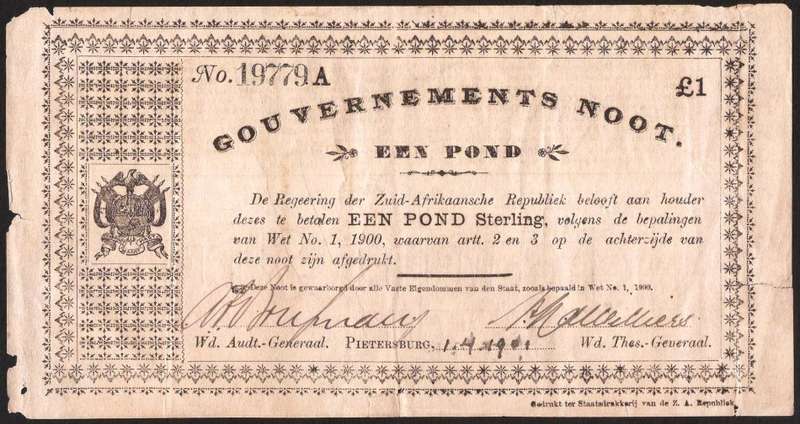 No. 19779 A
£1
GOUVERNEMENTS NOOT.
EEN POND
De Regeering der Zuid-Afrikaansche Republiek belooft aan houder
dezes te betalen EEN POND Sterling, volgens de bepalingen
van Wet No. 1, 1900, waarvan artt. 2 en 3 op de achterzijde van
deze noot zijn afgedrukt.
Deze Noot is gewaarborgd door alle Vaste Eigendommen van den Staat, zooals bepaald in Wet No. 1, 1900.
Wd. Audt.-Generaal. PIETERSBURG, 1.4.1901 Wd. Thes.-Generaal.
Gedrukt ter Staatsdrukkerij van de Z. A. Republiek